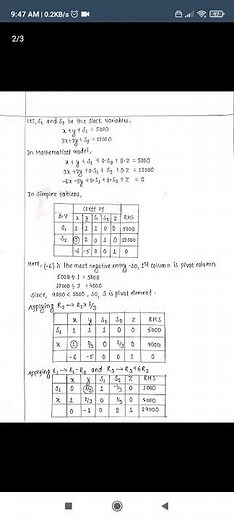 9:47 AM | 0.2KB/s
2/3
Let, S₁ and S₂ be the slack variables.
x+y+S₁ = 5000
3x+2y+S₂ = 12000
In Mathematical model,
x+y+S₁+0·S₂+0·Z = 5000
3x+2y+0·S₁+S₂+0·Z = 12000
-6x-5y+0·S₁+0·S₂+Z = 0
In Simplex tableau,
Coeff of
B.V x y S₁ S₂ Z RHS
S₁ 1 1 1 0 0 5000
S₂ 3 2 0 1 0 12000
-6 -5 0 0 1 0
Here, (-6) is the most negative entry so, 1st column is pivot column
5000÷1 = 5000
12000÷3 = 4000
Since, 4000 < 5000, so, 3 is pivot element.
Applying R₂→R₂×1/3
x y S₁ S₂ Z RHS
S₁ 1 1 1 0 0 5000
x 1 2/3 0 1/3 0 4000
-6 -5 0 0 1 0
Applying R₁→R₁-R₂ and R₃→R₃+6R₂
x y S₁ S₂ Z RHS
S₁ 0 1/3 1 0 1000
x 1 2/3 0 1/3 0 4000
0 -1 0 2 1 24000